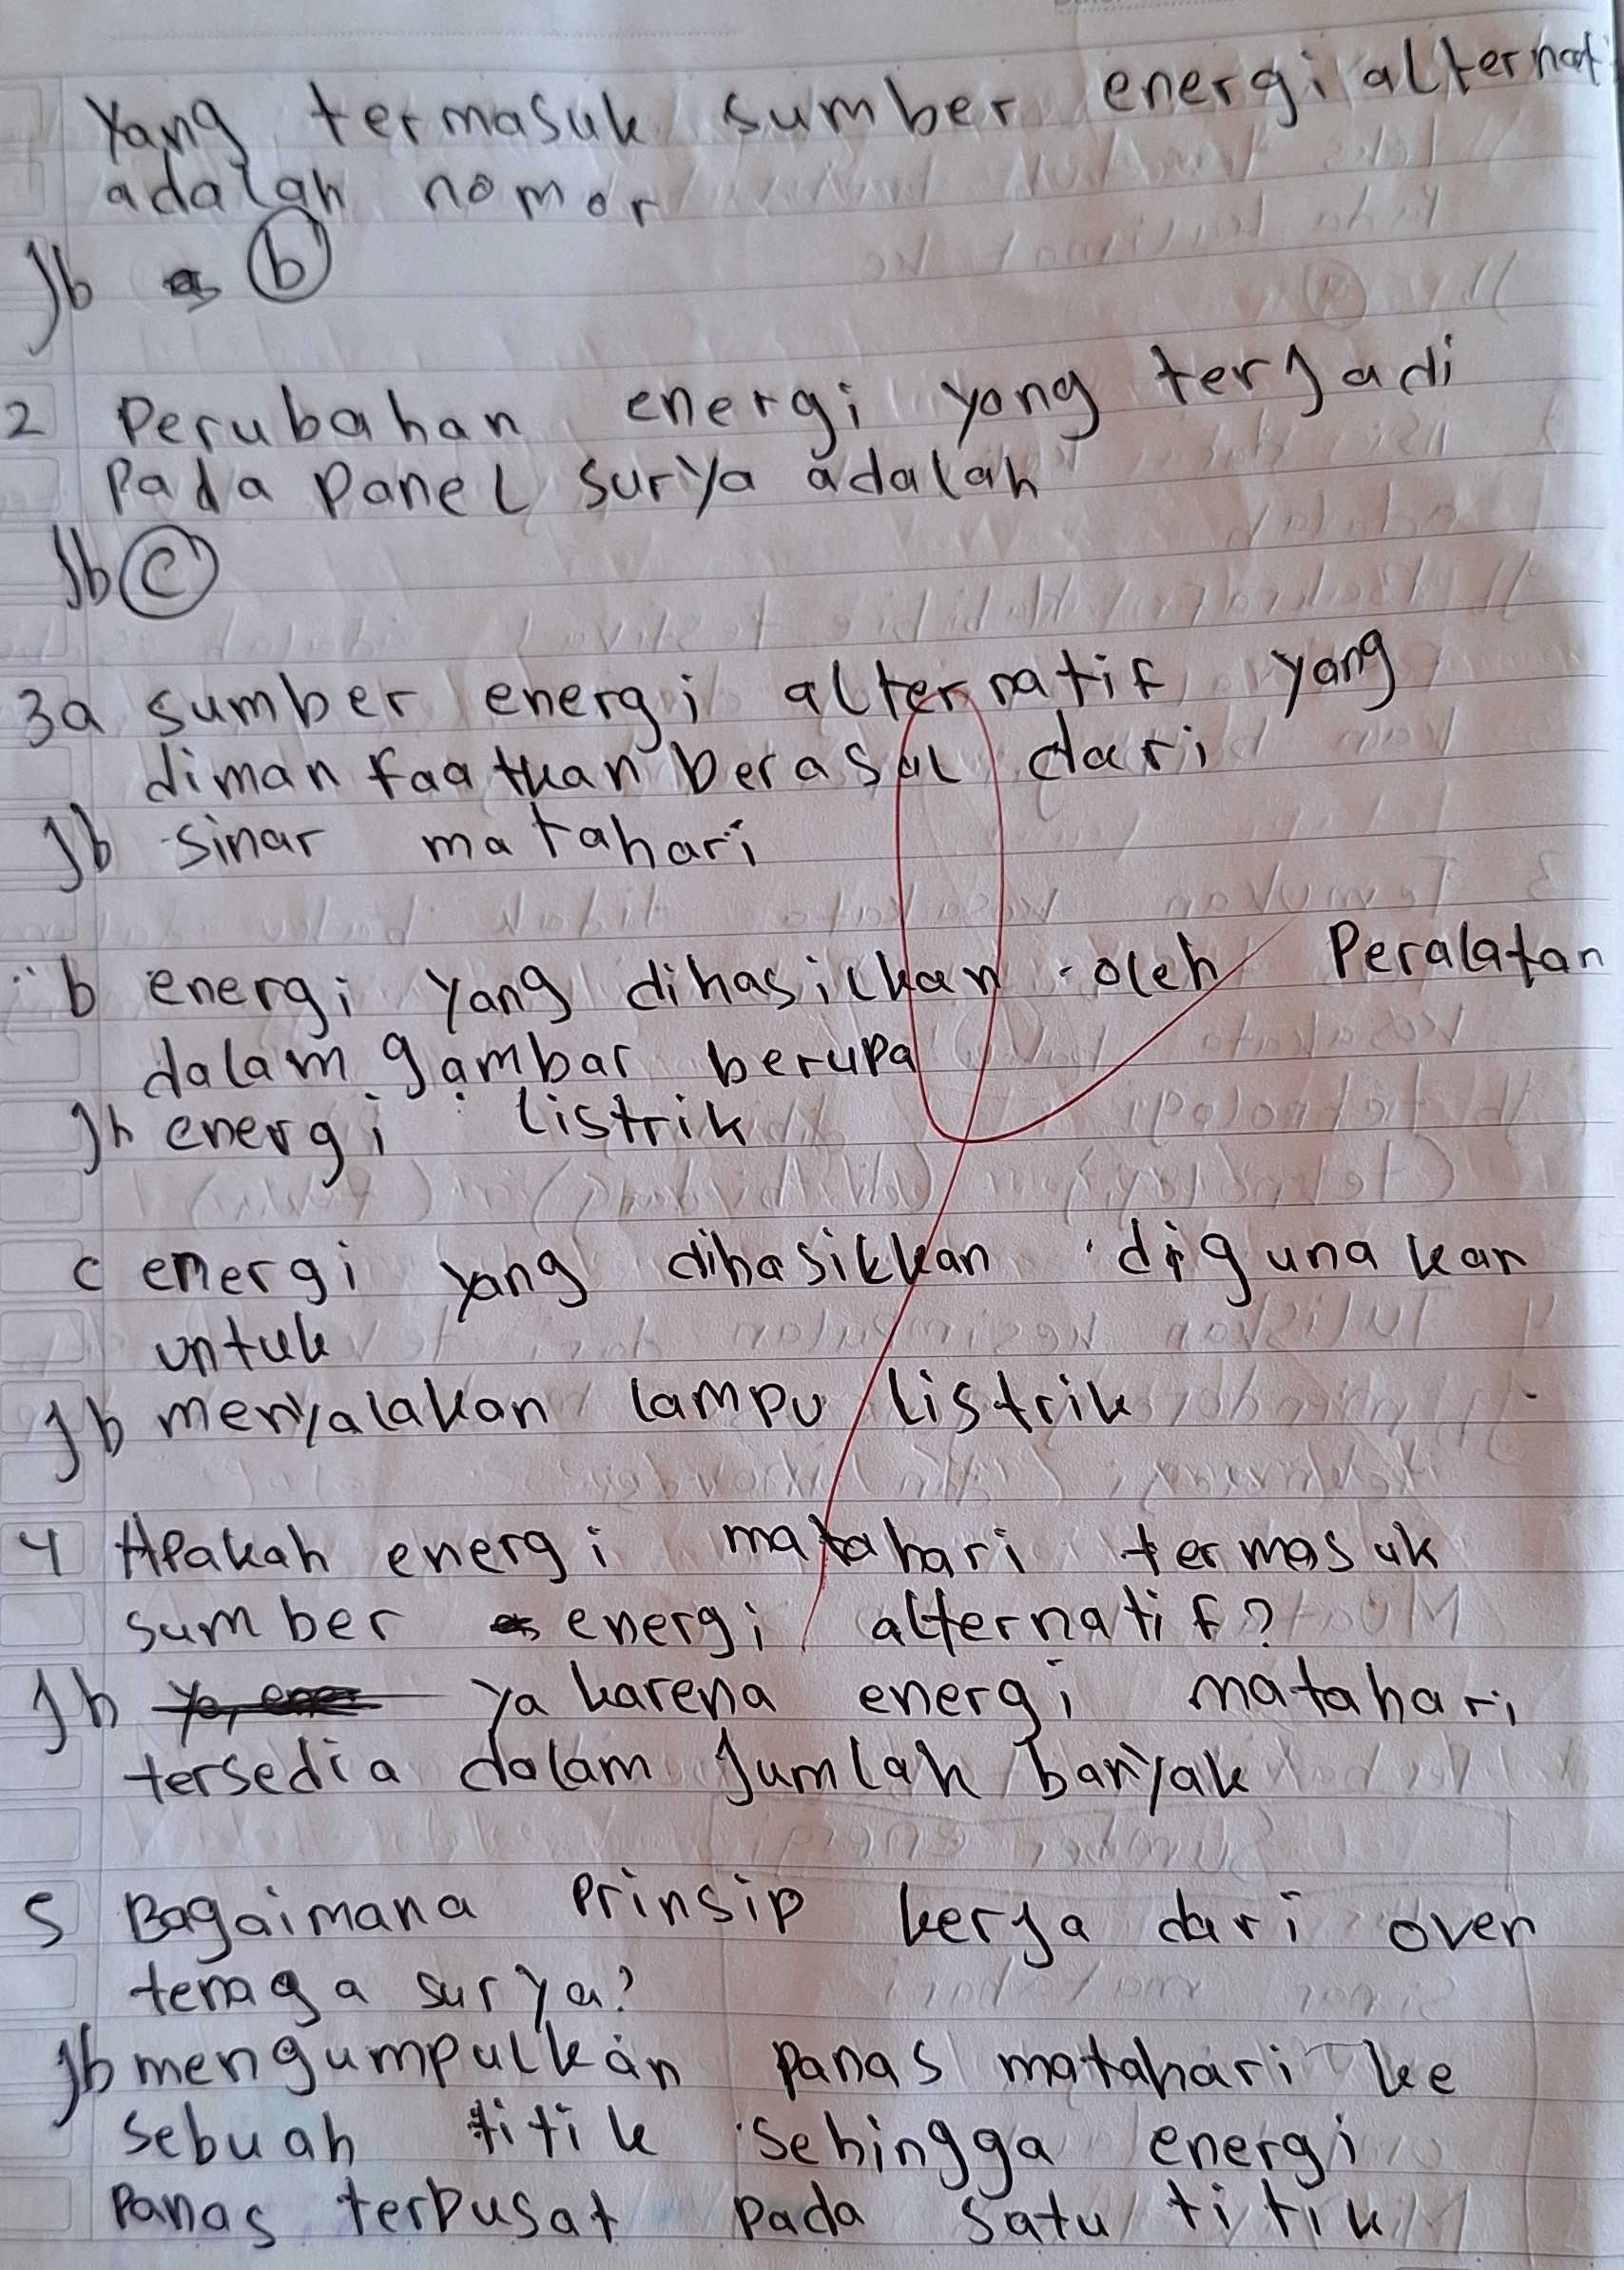 Yang termasuk sumber energi alternat
adalah nomor
Jb b
2 Perubahan energi yang terjadi
Pada Panel surya adalah
Jb c
3a sumber energi alternatif yang
dimanfaatkan berasal dari
Jb sinar matahari
b energi yang dihasilkan oleh Peralatan
dalam gambar berupa
Jb energi listrik
c energi yang dihasilkkan digunakan
untuk
Jb menyalakan lampu listrik
4 Apakah energi matahari termasuk
sumber energi alternatif?
Jb ya karena energi matahari
tersedia dalam Jumlah banyak
5 Bagaimana Prinsip kerja dari oven
tenaga surya?
Jb mengumpulkan panas matahari ke
sebuah titik sehingga energi
Panas terpusat pada satu titik